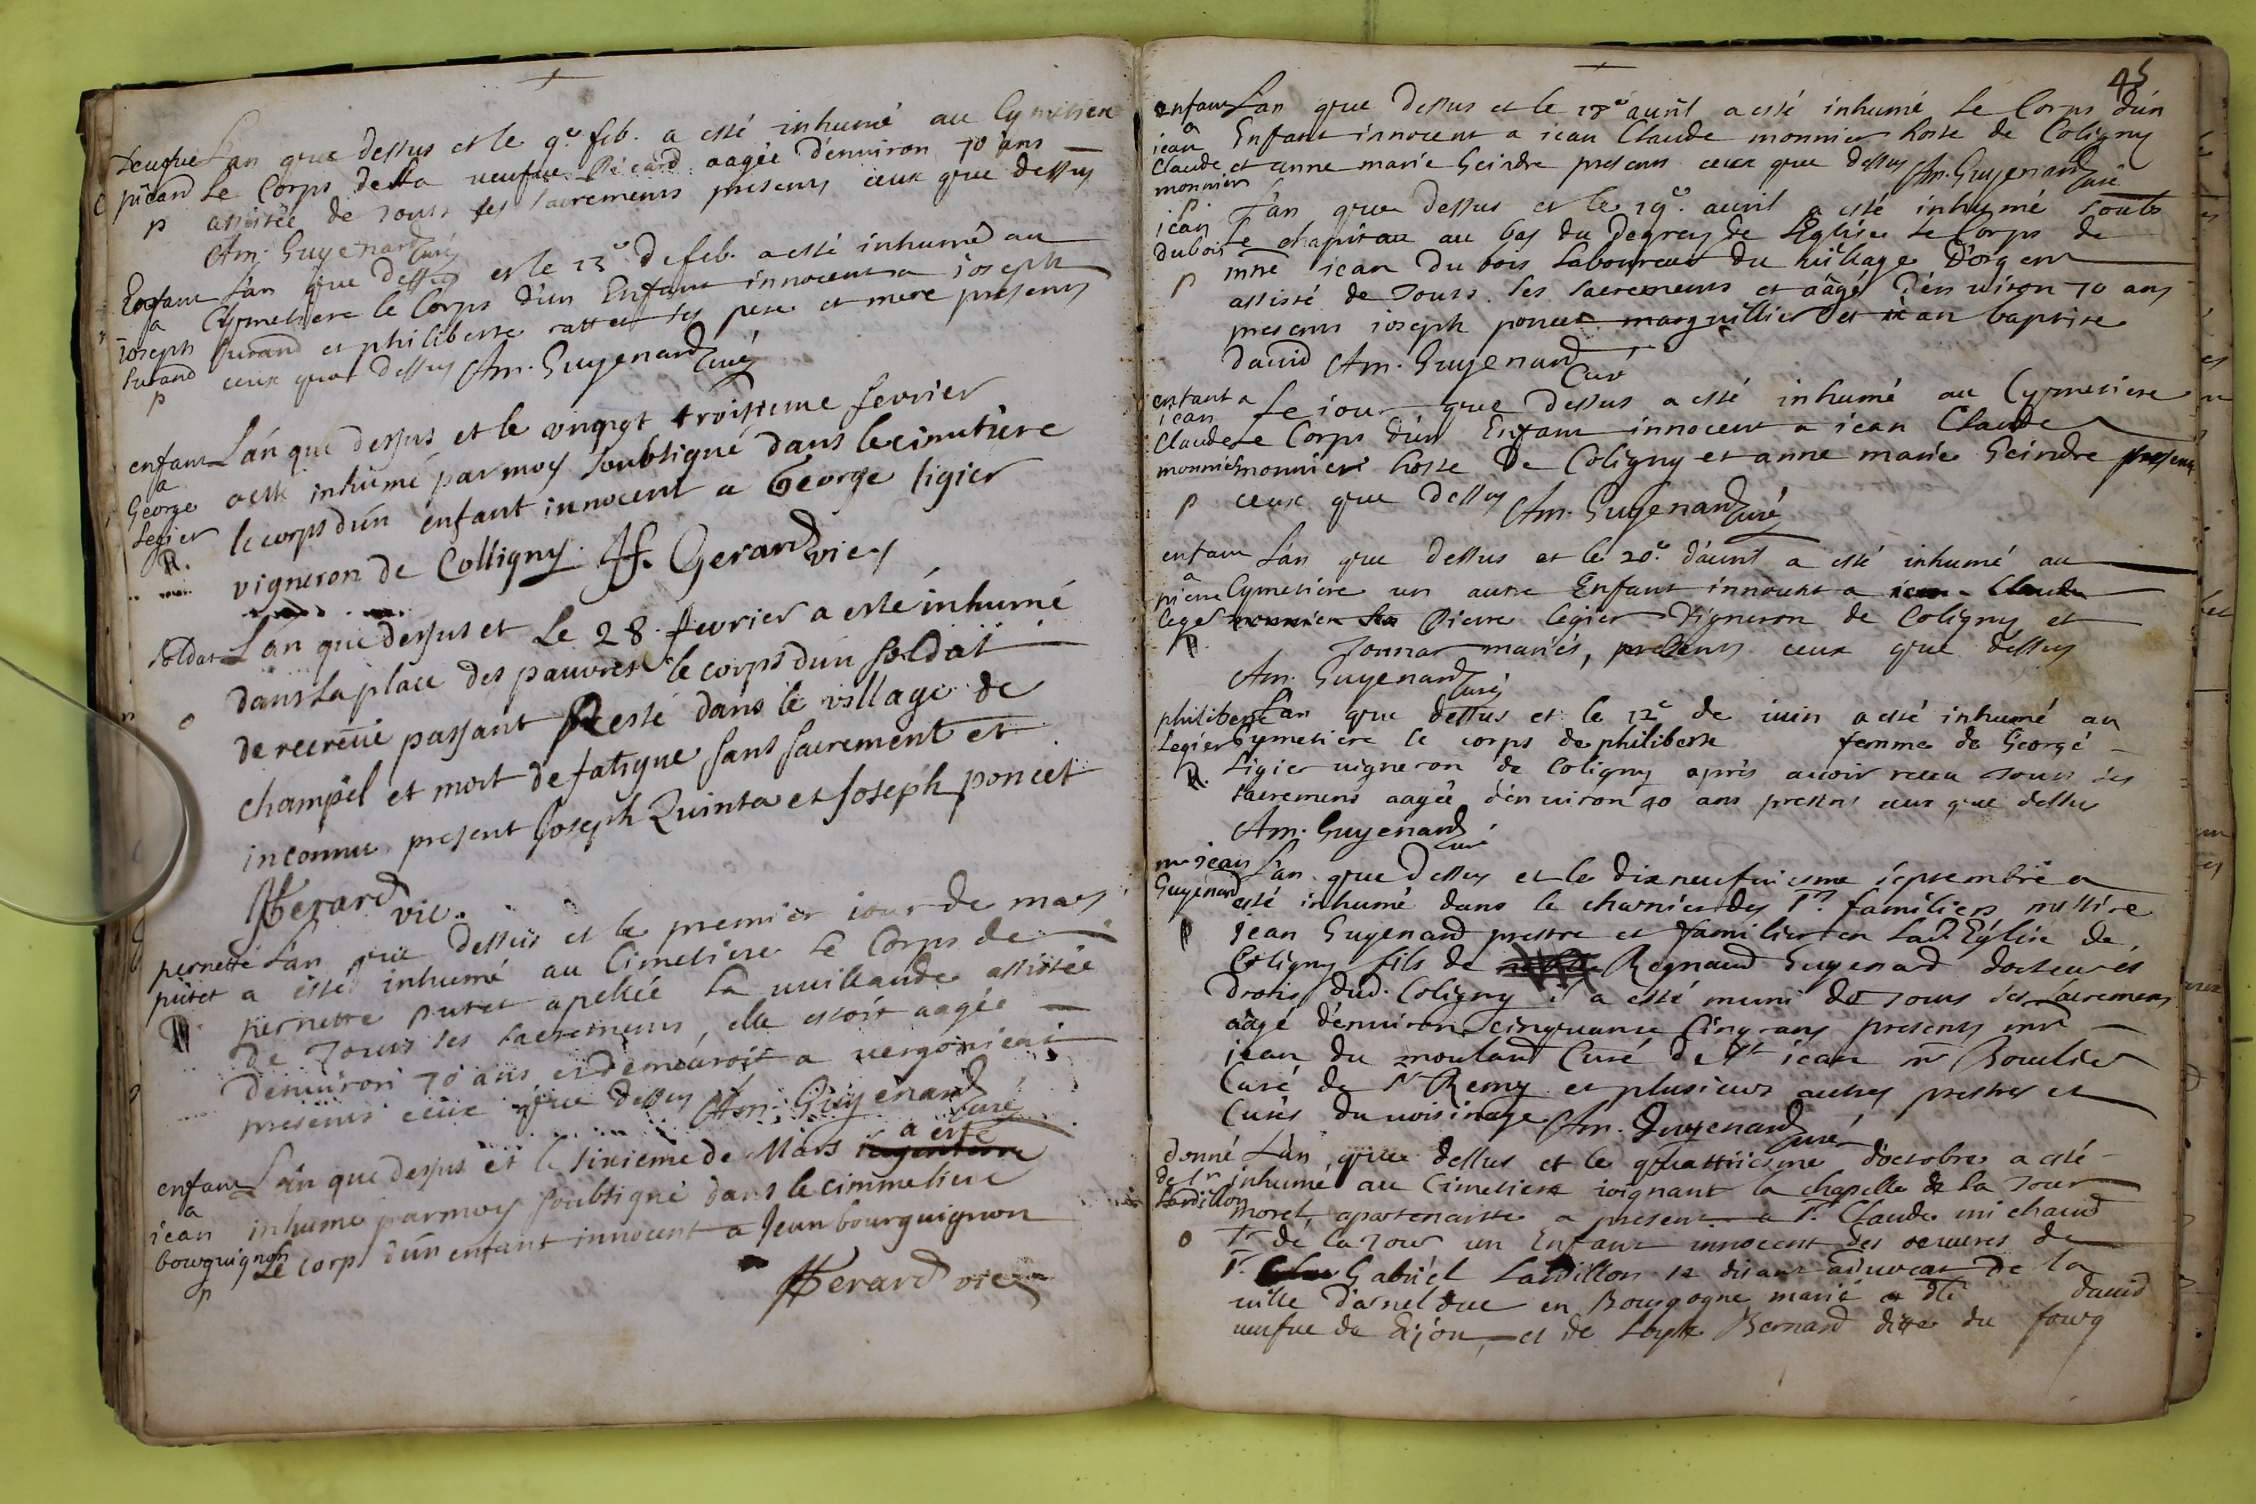 L'an que dessus et le 9.e feb. a esté inhumé au Cymetiere
veufue
picard le Corps de la veufue Picard aagée d'enuiron 70 ans
p assistée de tous les sacrements presents ceux que dessus
Am. Guyenard curé
Enfant L'an que dessus et le 13.e de feb. a esté inhumé au
a Cymetiere le Corps d'un Enfant innocent a ioseph
ioseph durand et philiberte rattet ses pere et mere presents
durand ceux que dessus Am. Guyenard curé
p
enfant L'an que dessus et le vingt troisieme fevrier
a
George a esté inhumé par moy soubsigné dans le cimetiere
Legier le corps d'un enfant innocent a George ligier
R.
vigneron de Colligny. Gerard vic
soldat L'an que dessus et le 28. fevrier a esté inhumé
dans la place des pauvres le corps d'un soldat
o de recreüe passant Resté dans le village de
champêl et mort de fatigue sans sacrement et
inconnu present Joseph Quinta et Joseph poncet
Gerard vic.
pernette L'an que dessus et le premier iour de mars
putet a esté inhumé au Cimetiere le Corps de
pernette putet apellée la uuillaude assistée
de tous les sacrements, elle estoit aagée
d'enuiron 70 ans et demeuroit a vergonieat
presents ceux que dessus Am. Guyenard curé
a esté
enfant L'an que dessus et le sixieme de Mars
a
inhumé par moy soubsigné dans le cimmetiere
iean
bourguignon le corp d'un enfant innocent a Jean bourguignon
p
Gerard vic
45
enfant L'an que dessus et le 18.e auril a esté inhumé le Corps d'un
a
iean Enfant innocent a iean Claude monnier hoste de Coligny
Claude et anne marie Geindre presents ceux que dessus Am. Guyenard curé
monnier
p.
iean L'an que dessus et le 19.e auril a esté inhumé soubs
dubois le chapitau au bas du degrez de l'Eglise le Corps de
p mre iean du bois laboureur du uillage D'oigens
assisté de tous les sacrements et aâgé d'enuiron 70 ans
presents ioseph poncet marguillier et iean baptiste
dauid Am. Guyenard
Curé
enfant a
iean Le iour que dessus a esté inhumé au Cymetiere
Claude le Corps d'un Enfant innocent a iean Claude
monnier monnier hoste de Coligny et anne marie Geindre presents
p ceux que dessus Am. Guyenard curé
enfant L'an que dessus et le 20.e d'auril a esté inhumé au
a
pierre Cymetiere un autre Enfant innocent a iean Claude
leger monnier Pierre legier Vigneron de Coligny et
R. Jonnar mariés, presents ceux que dessus
Am. Guyenard curé
philiberte L'an que dessus et le 12.e de iuin a esté inhumé au
Legier Cymetiere le corps de philiberte femme de George
R. Ligier uigneron de Coligny apris auoir receu tous les
sacremens aagée d'enuiron 40 ans presens ceux que dessus
Am. Guyenard
curé
mre iean L'an que dessus et le dixneufuiesme septembre a
Guyenard esté inhumé dans le charnier des Srs familiers messire
p iean Guyenard prestre et familier en lad. Eglise de
Coligny fils de Regnaud Guyenard docteur és
droits dud. Coligny il a esté muni de tous les sacremens
aâgé d'enuiron cinquante cinq ans presents mre
iean du moulard Curé de St iean mr Boulier
Curé de St Remy et plusieurs autres prestres et
Curés du uoisinage Am. Guyenard curé
donné L'an que dessus et le quattriesme d'octobre a esté
de Sr inhumé au Cimetiere ioignant la chapelle de la tour
Lardillon morel apartenante a present a Sr. Claude michaud
o Sr de la tour un Enfant innocent des oeuures de
Sr. Gabriel Lardillon se disant aduocat de la
uille d'arnel duc en Bourgogne marié a dlle dauid
ueufue de dijon, et de Loyse Bernard ditte du fourg